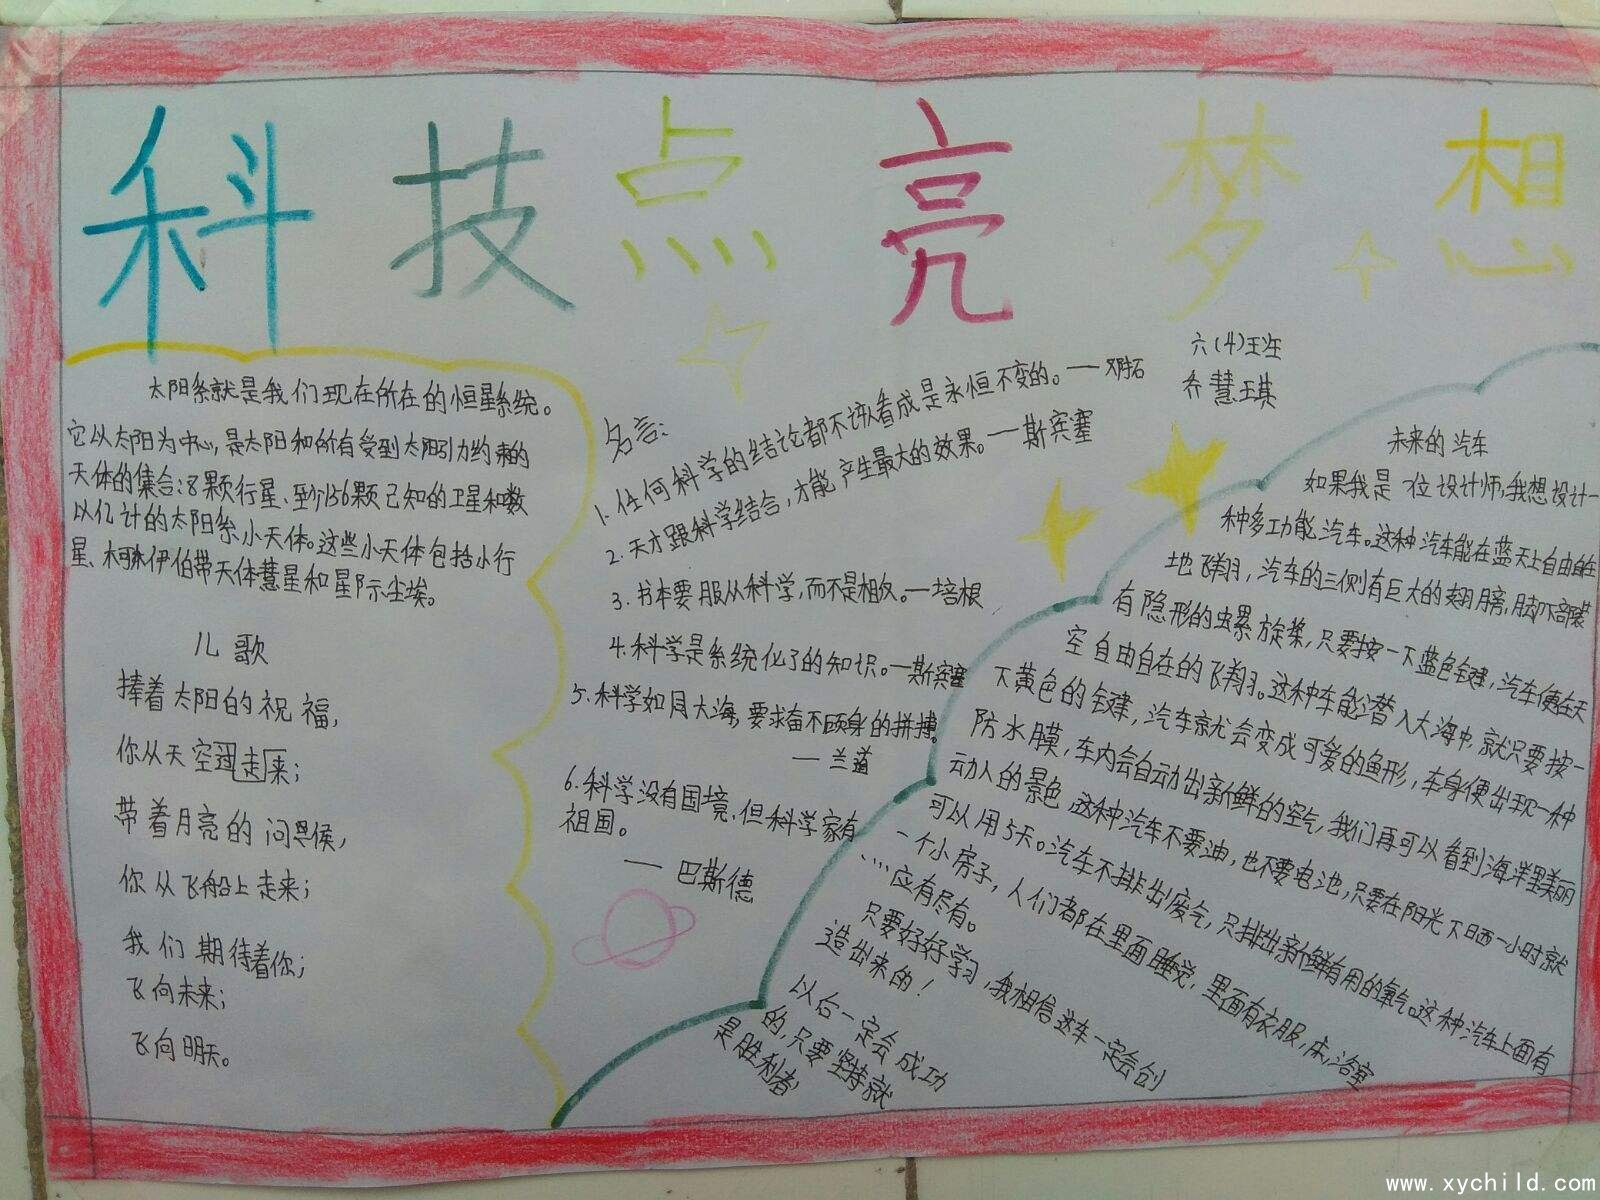 科技点亮梦想
六(4)班
乔慧琪
太阳系就是我们现在所在的恒星系统。
它以太阳为中心,是太阳和所有受到太阳引力约束的
天体的集合:8颗行星、至少156颗已知的卫星和数
以亿计的太阳系小天体。这些小天体包括小行
星、柯伊伯带天体彗星和星际尘埃。
儿歌
捧着太阳的祝福,
你从天空迎走来;
带着月亮的问候,
你从飞船上走来;
我们期待着你;
飞向未来;
飞向明天。
名言:
1.任何科学的结论都不该看成是永恒不变的。——邓拓
2.天才跟科学结合,才能产生最大的效果。——斯宾塞
3.书本要服从科学,而不是相反。—培根
4.科学是系统化了的知识。—斯宾塞
5.科学如同大海,要求奋不顾身的拼搏。
——兰道
6.科学没有国境,但科学家有
祖国。
—— 巴斯德
未来的汽车
如果我是一位设计师,我想设计一
种多功能汽车。这种汽车能在蓝天上自由自在
地飞翔,汽车的三侧有巨大的翅膀,脚下部装
有隐形的螺旋桨,只要按一下蓝色键,汽车便在天
空自由自在的飞翔。这种车能潜入大海中,就只要按一
下黄色的键,汽车就会变成可爱的鱼形,车身便出现一种
防水膜,车内会自动出新鲜的空气,我们再可以看到海洋里美丽
动人的景色 这种汽车不要油,也不要电池,只要在阳光下晒一小时就
可以用5天。汽车不排出废气,只排出新鲜有用的氧气。这种汽车上面有
一个小房子,人们都在里面睡觉,里面有衣服,床,浴室
……应有尽有。
只要好好学习,我相信这车一定会创
造出来的!
以后一定会成功
的,只要坚持就
是胜利者
www.xychild.com